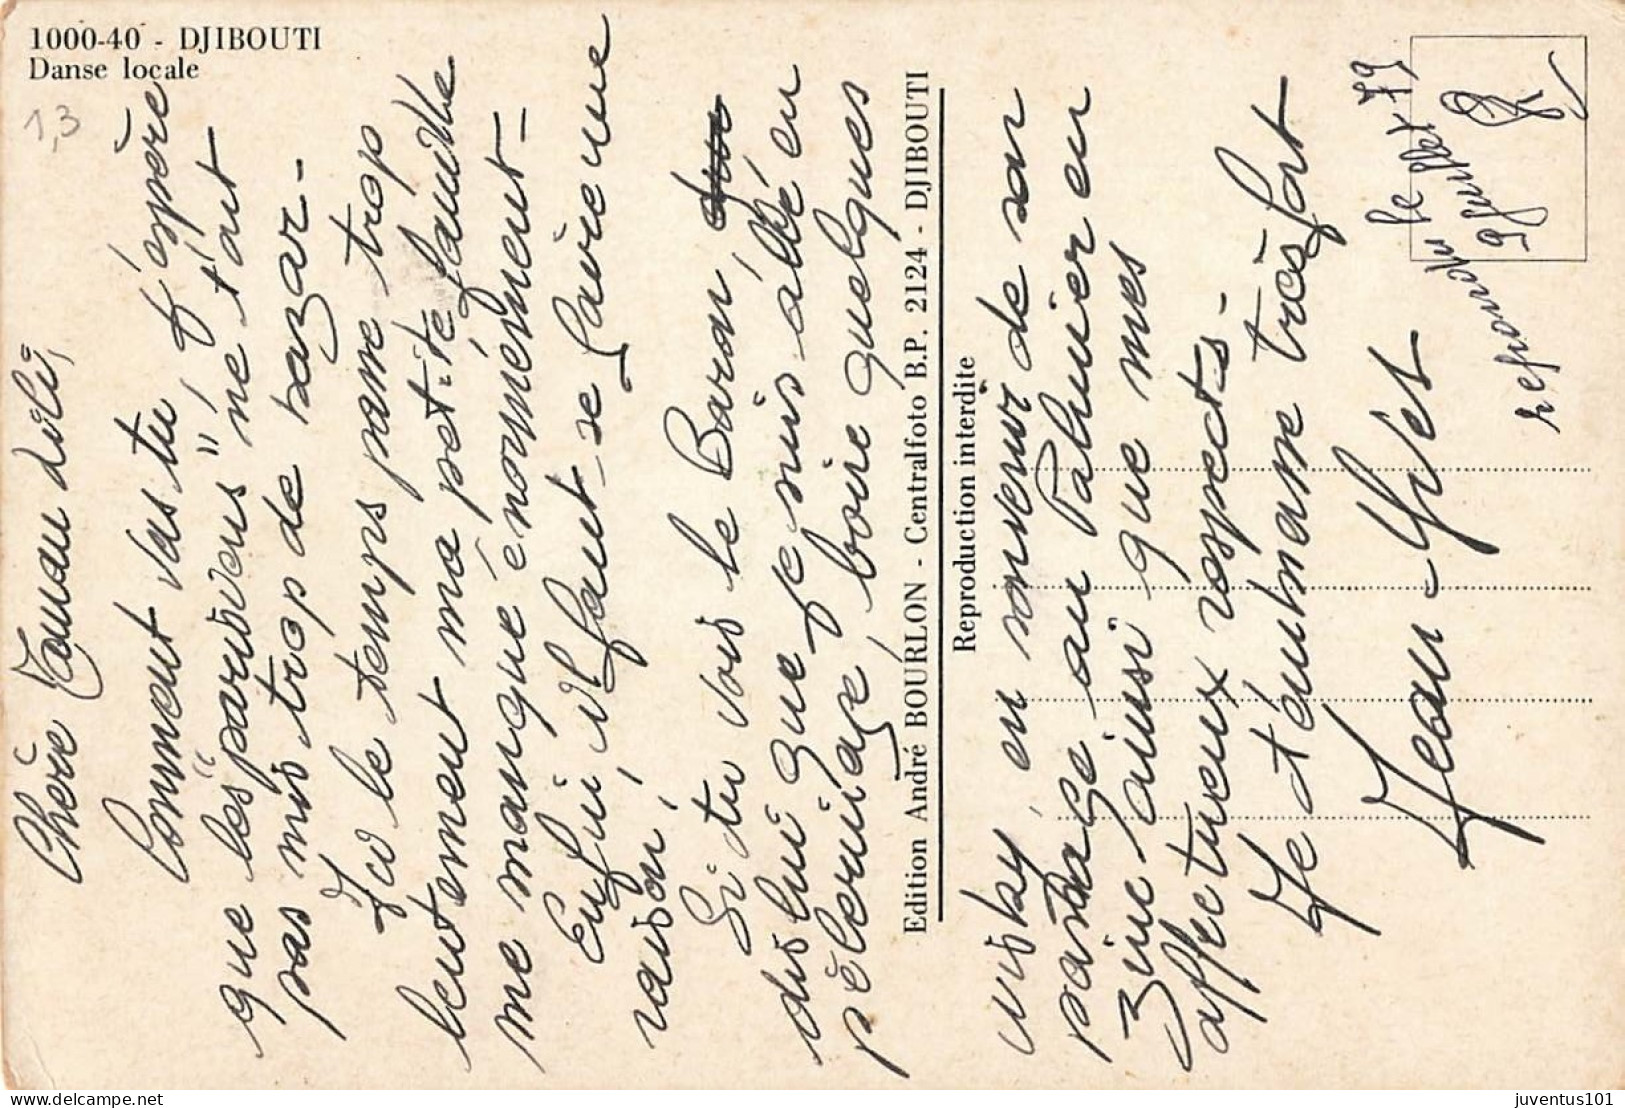 1000-40 - DJIBOUTI
Danse locale
1,3
Chère Maman Lili,
Comment vas tu, j'éspère
que les "parisiens" ne t'ont
pas mis trop de bazar -
Ici le temps passe trop
lentement ma petite famille
me manque énormément -
Enfin, il faut se faire une
raison,
Si tu vois le Baron,
dis lui que je suis allé en
pélerinage, boire quelques
Edition André BOURLON - Centralfoto B.P. 2124 - DJIBOUTI
Reproduction interdite
wisky, en souvenir de son
passage au Palmier en
Zinc ainsi que mes
affectueux respects -
Je t'embrasse très fort
Jean-Yves
répondu le